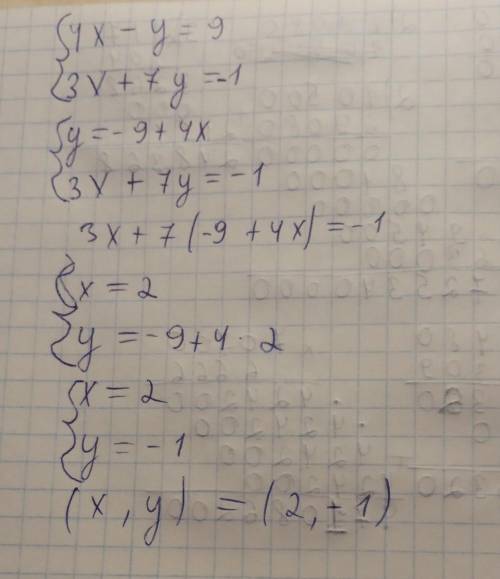 {4x - y = 9
{3x + 7y = -1
{y = -9 + 4x
{3x + 7y = -1
3x + 7(-9 + 4x) = -1
{x = 2
{y = -9 + 4 · 2
{x = 2
{y = -1
(x, y) = (2, -1)